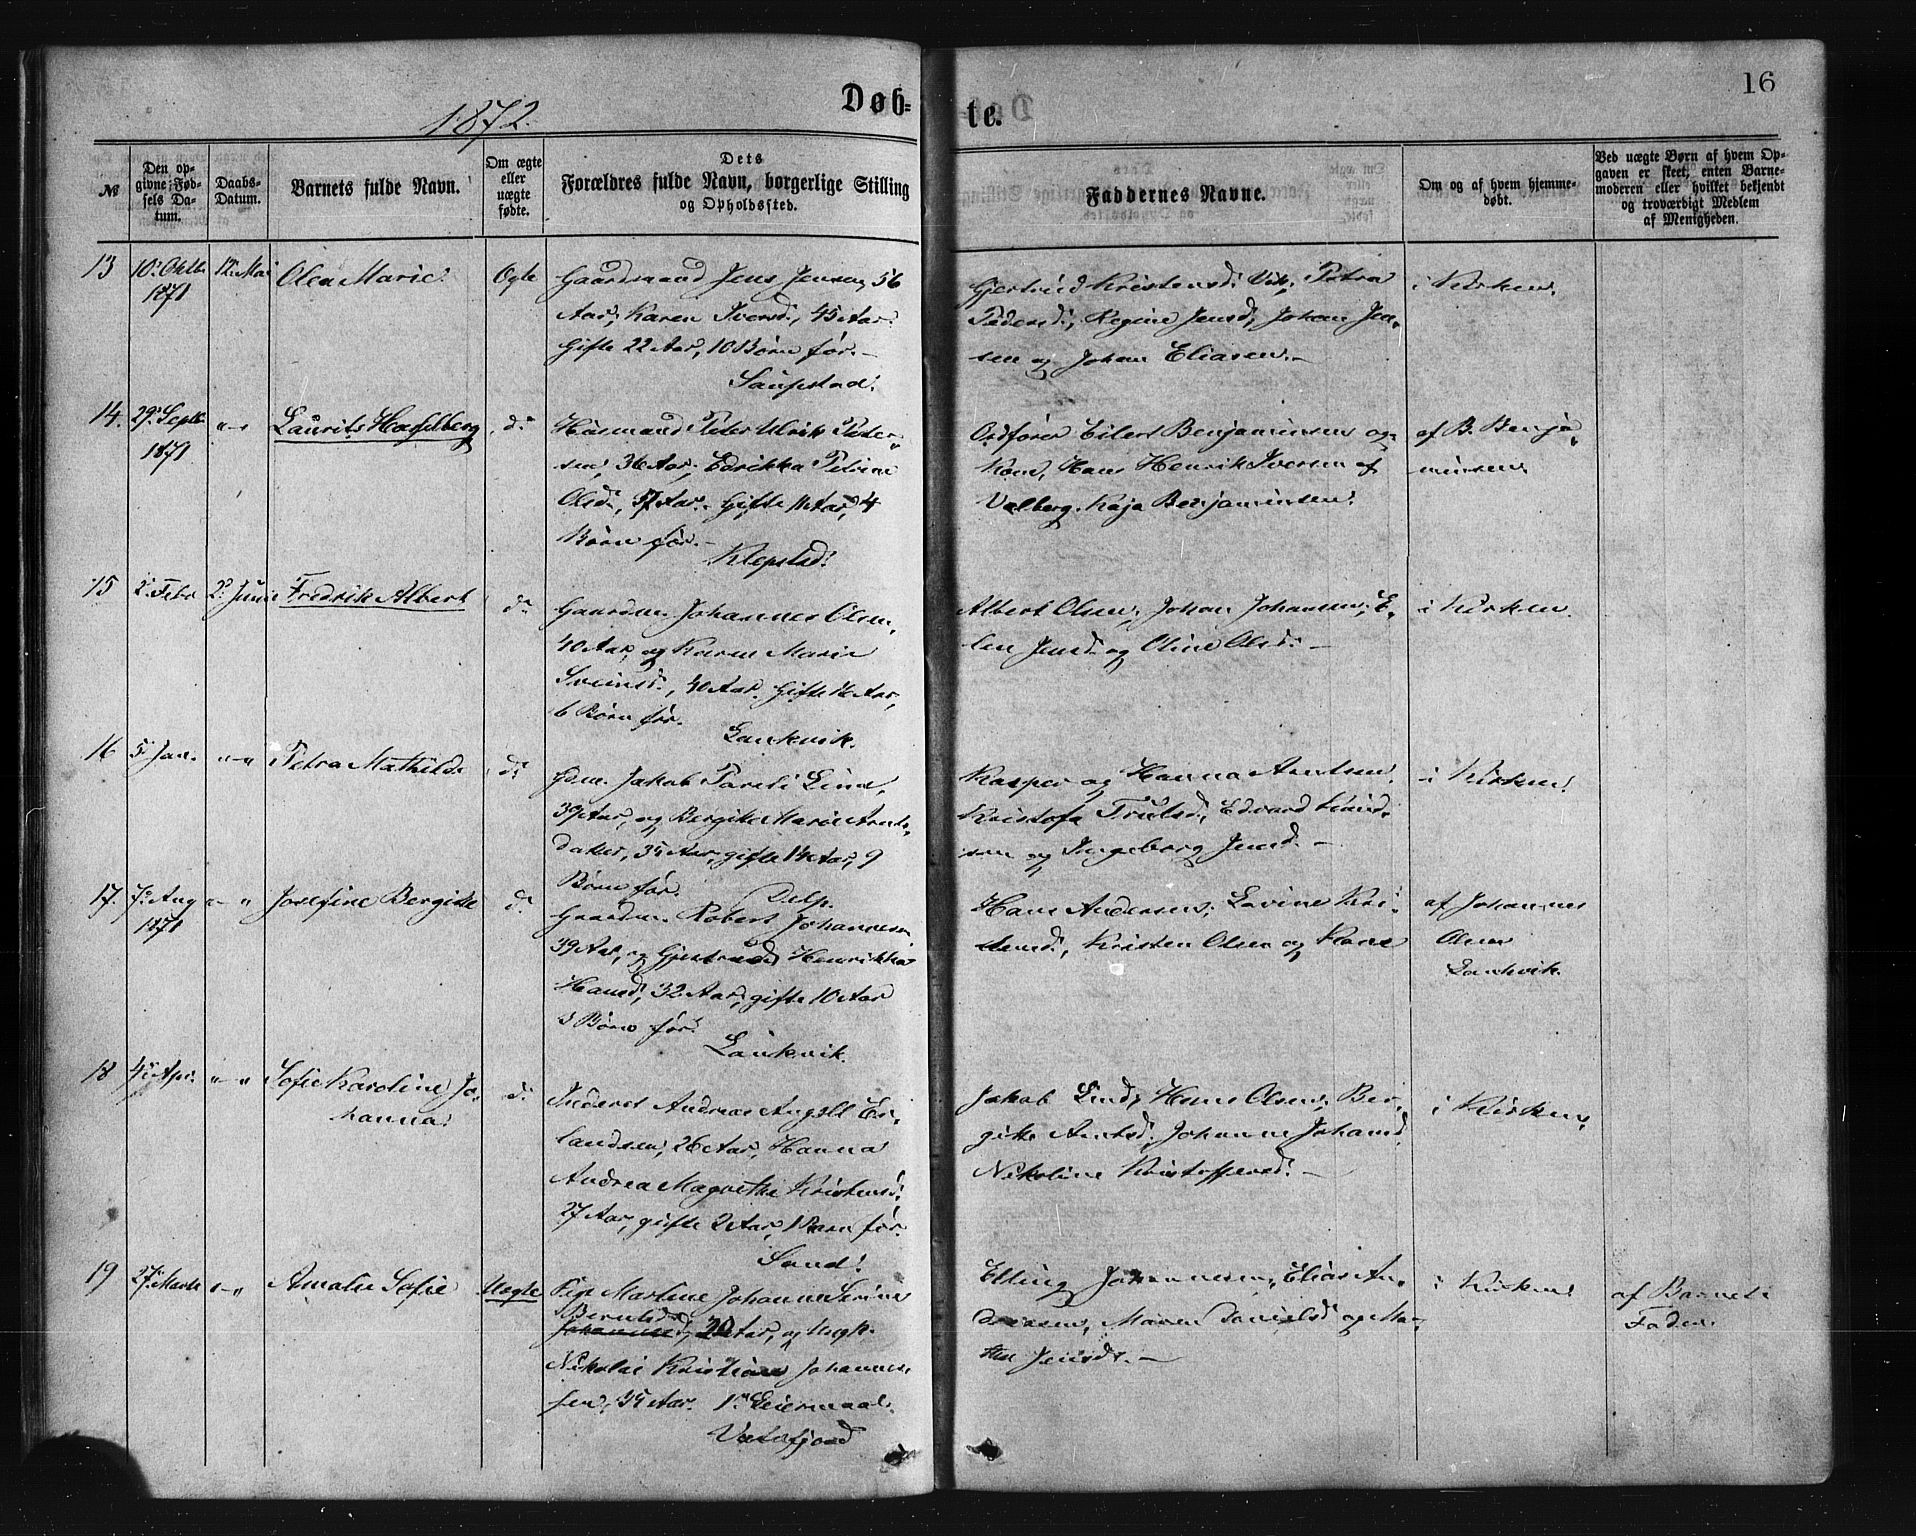 16
1872.
Døb-
te.
№
Den op-
givne Fød-
sels Da-
tum.
Daabs-
Datum.
Barnets fulde Navn.
Om ægte
eller
uægte
fødte.
Dets
Forældres fulde Navn, borgerlige Stilling
og Opholdssted.
Faddernes Navne.
Om og af hvem hjemme-
døbt.
Ved uægte Børn af hvem Op-
gaven er skeet, enten Barne-
moderen eller hvilket bekjendt
og troværdigt Medlem
af Menigheden.
13
10de Oktb.
1871
12te Mai
Olea Marie.
Ægte
Gaardmand Jens Jensen, 56
Aar, Karen Iversd., 45 Aar.
Gifte 22 Aar, 10 Børn før.—
Saupstad.
Gjertrud Kristensd. Vik, Petra
Pedersd., Regine Jensd., Johan Jen-
sen og Johan Eliasen.—
i Kirken.
14.
29de Septb.
1871
"—"
Laurits Hasselberg
do
Huusmand Peter Ulrik Peder-
sen, 36 Aar, Edrikka Petrine
Olsd., 37 Aar. Gifte 11 Aar, 4
Børn før.—
Klepstad.
Ordfører Eilert Benjaminsen og
Kone, Hans Henrik Iversen af
Valberg. Kaja Benjaminsen.
af B. Benja-
minsen
15
2. Febr
2. Junie
Fredrik Albert
do
Gaardm. Johannes Olsen,
40 Aar, og Karen Marie
Sveinsd., 40 Aar. Gifte 16 Aar,
6 Børn før.
Laukvik.
Albert Olsen, Johan Johansen, E-
len Jensd. og Oline Olsd. —
i Kirken.
16
5. Jan.
"—"
Petra Mathilde
do
Gdm. Jakob Pareli Lind,
39 Aar, og Bergitte Marie Arnts-
datter, 35 Aar, gifte 14 Aar, 9
Børn før.
Delp.
Kasper og Hanna Arntsen.
Kristofa Trulsd., Edvard
sen og Ingeborg Jensd. —
i Kirken.
17.
7de Aug
1871
"—"
Josefine Bergitte
do
Gaardm. Robert Johannesen
39 Aar, og Gjertrud Henrikka
Hansd., 32 Aar, gifte 10 Aar
3 Børn før.
Laukvik.
Hans Andersen, Lovine Kri-
stensd., Kristen Olsen og Kone
af Johannes
Olsen
Laukvik.
18
4de Apr.
"—"
Sofie Karoline Jo-
hanna.
do
Inderst Andreas Angell Er-
landsen, 26 Aar, Hanna
Andrea Magrethe Kristensd.
27 Aar, gifte 2 Aar, 1 Barn før.
Sand.
Jakob Lind, Hans Olsen, Ber-
gitte Arntsd., Johanne Johansd.
Nikoline Kristoffersd. —
i Kirken.
19
27de Marts
"—"
Amalie Sofie
Uægte
Pige Marlene Johanna Serine
Berntsd.
20 Aar, og Ungk.
Nikolai Kristian Johannes-
sen, 34 Aar. 1ste Leiermaal.
Vaterfjord
Elling Johannesen, Elias An-
dreasen, Maren Danielsd. og Ma-
thea Jensd. —
i Kirken.
af Barnets
Fader.